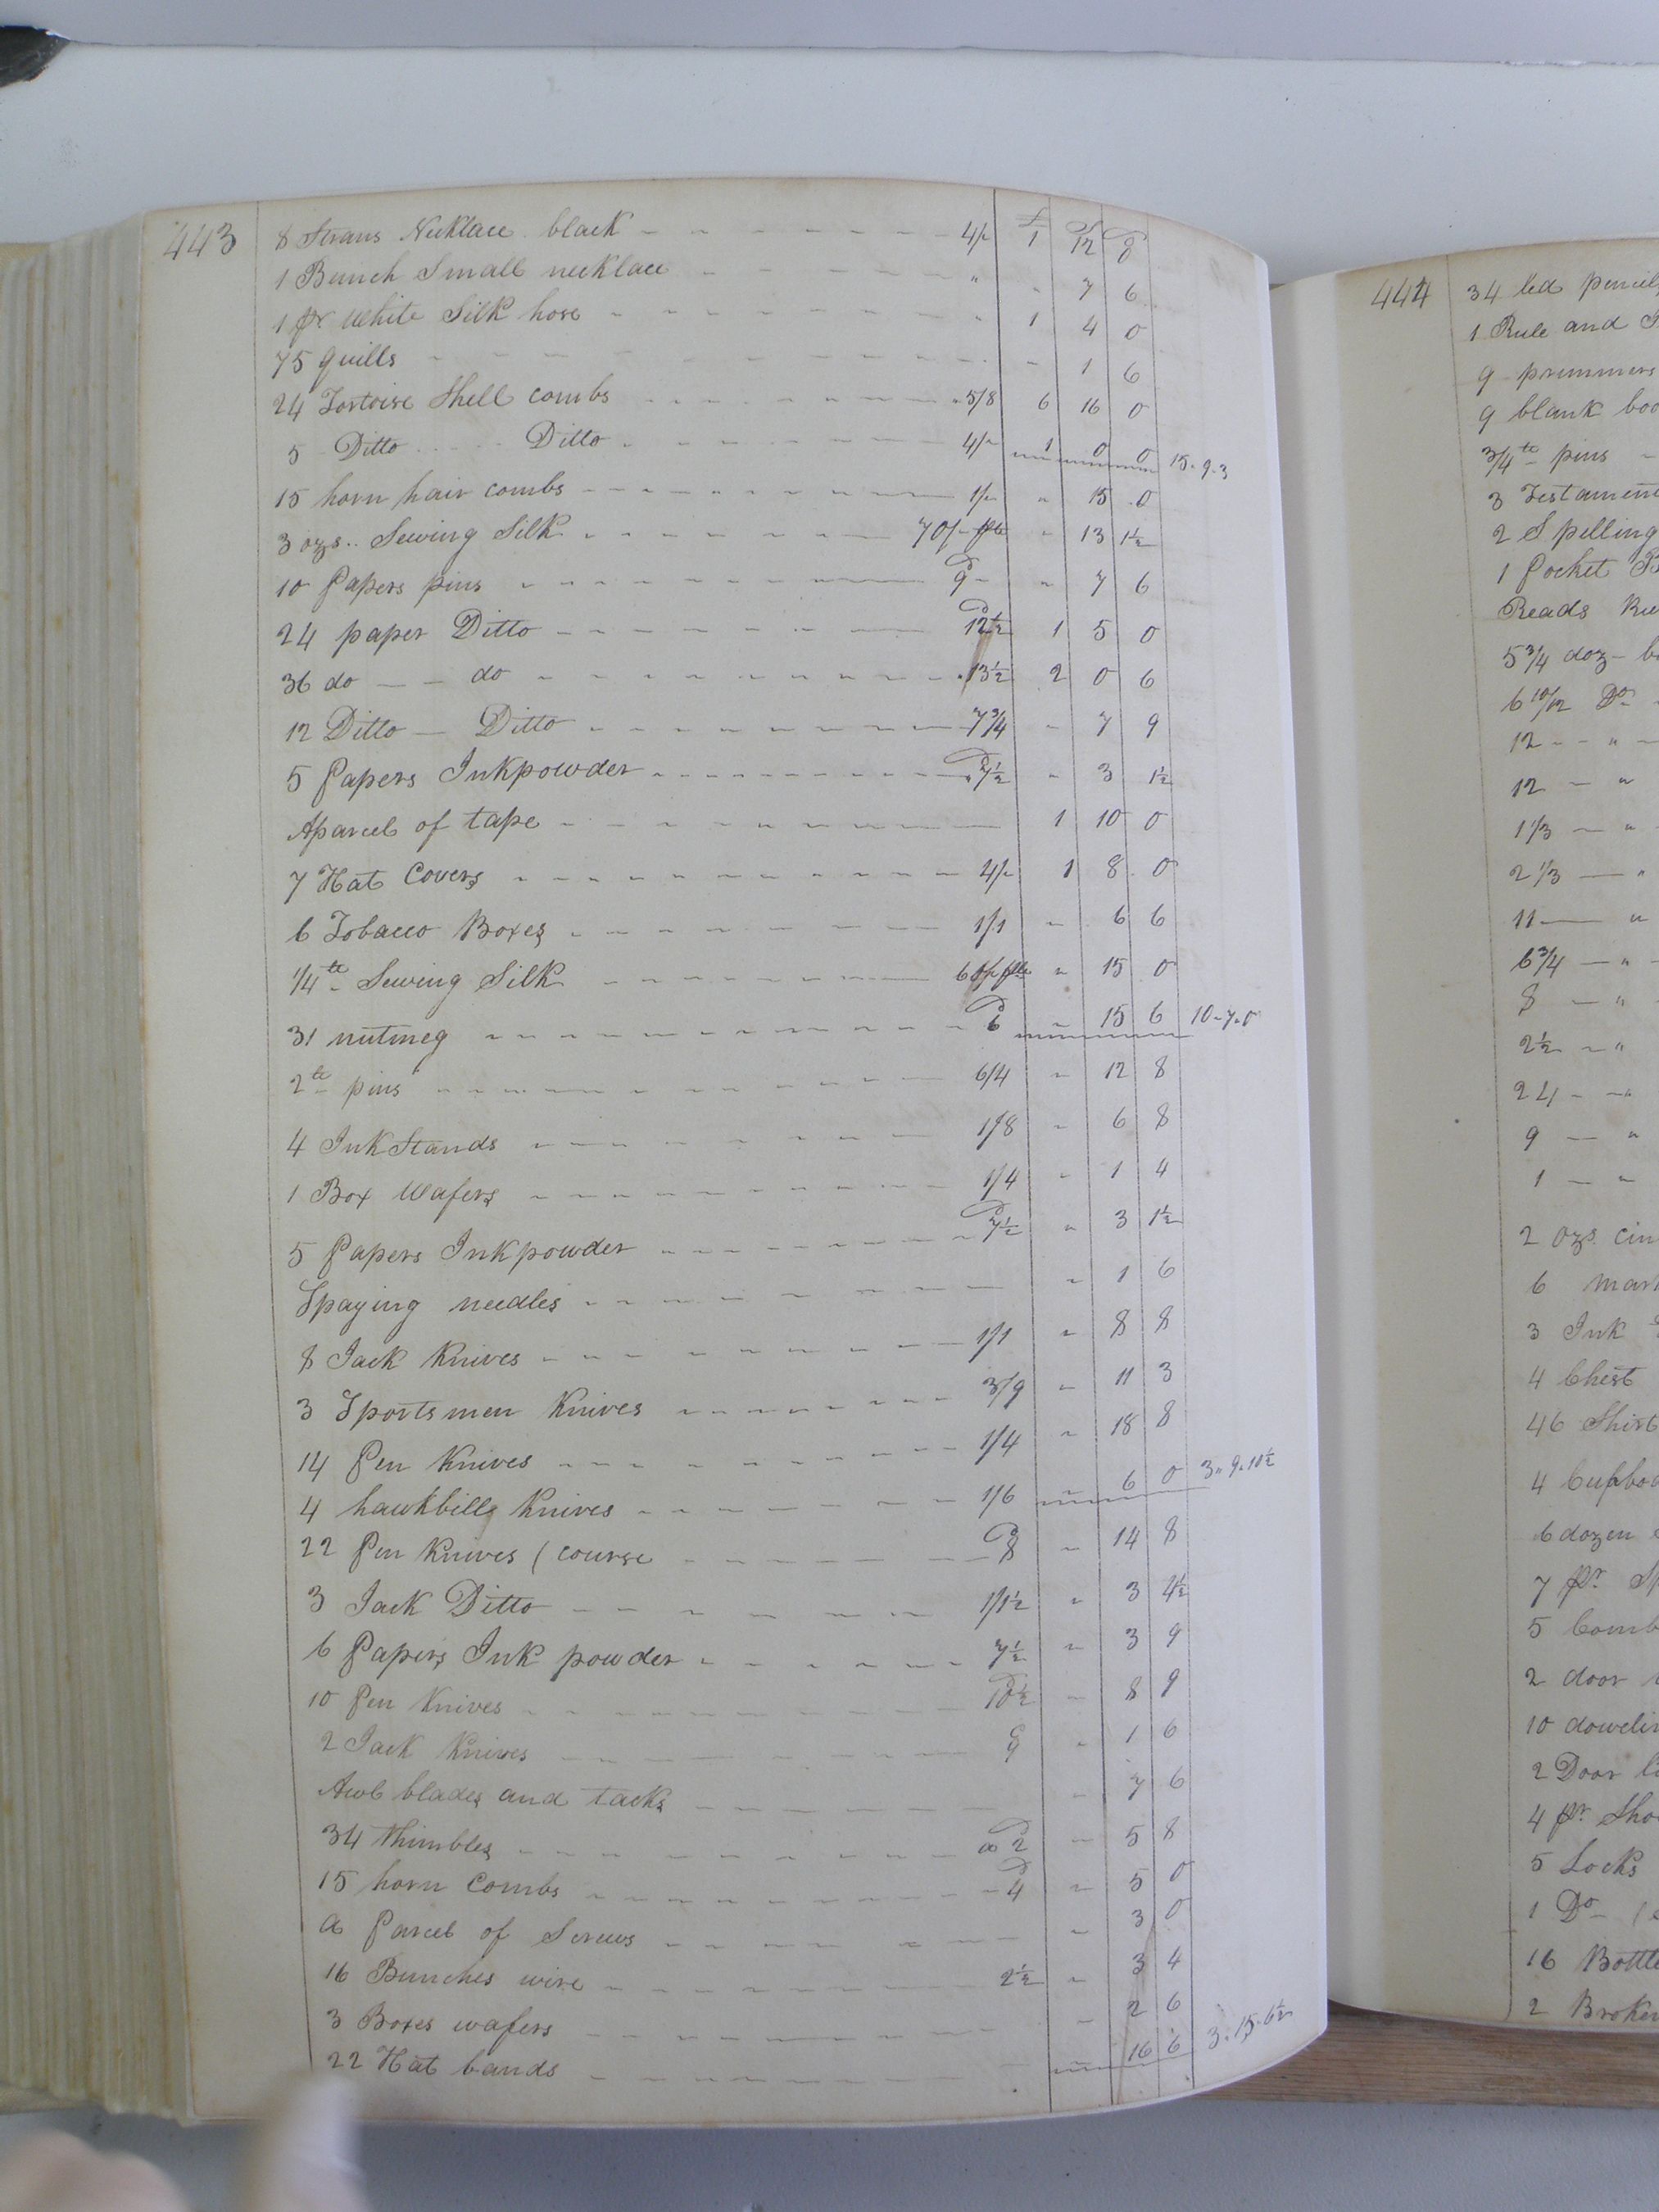 443
£ S D
8 Strans Necklace black 4/- 1 12 8
1 Bunch Small necklace " - 7 6
1 pr White Silk hose " 1 4 0
75 quills - 1 6
24 Tortoise Shell combs 5/8 6 16 0
5 Ditto Ditto 4/- 1 0 0 15-9-3
15 horn hair combs 1/- " 15 0
3 ozs.. Sewing Silk 70/- " 13 1½
10 Papers pins 9d " 7 6
24 paper Ditto 12½d 1 5 0
36 do do 13½ 2 0 6
12 Ditto Ditto 7¾ - 7 9
5 Papers Inkpowder 7½d " 3 1½
Aparcel of tape 1 10 0
7 Hat Covers 4/- 1 8 0
6 Tobacco Boxes 1/1 - 6 6
1/4 lb Sewing Silk 60/- " 15 0
31 nutmeg 6d - 15 6 10-7-0
2 lb pins 6/4 - 12 8
4 InkStands 1/8 - 6 8
1 Box Wafers 1/4 - 1 4
5 Papers Inkpowder 7½d " 3 1½
Spaying needles - 1 6
8 Jack Knives 1/1 " 8 8
3 Sportsmen Knives 3/9 - 11 3
14 Pen Knives 1/4 - 18 8
4 hawkbills Knives 1/6 - 6 0 3-9-10½
22 Pen Knives (course 8d - 14 8
3 Jack Ditto 1/1½ " 3 4½
6 Papers Ink powder 7½ " 3 9
10 Pen Knives 10½d - 8 9
2 Jack Knives 9 " 1 6
Awl blades and tacks - 7 6
34 thimbles a 2d - 5 8
15 horn Combs 4d - 5 0
a Parcel of Screws - 3 0
16 Bunches wire 2½ - 3 4
3 Boxes wafers - 2 6
22 Hat bands - 16 6 3-15-6½
444
34 led pencils
1 Rule and
9 primmers
9 blank
3/4 lb pins
3
2 Spelling
1 Pocket
Reads
5¾ doz
6 10/12 Do
12 "
12 "
1 1/3 "
2 1/3 "
11 "
6¾ "
8 "
2½ "
24
9 "
1
2 ozs
6
3 Ink
4 Chest
46
4
6 dozen
7 pr
5
2 door
10
2 Door
4 pr
5 Locks
1 Do
16
2